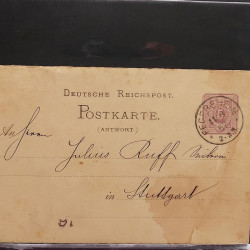 DEUTSCHE REICHSPOST.
POSTKARTE.
(ANTWORT)
An Herrn
Julius Ruff
in Stuttgart